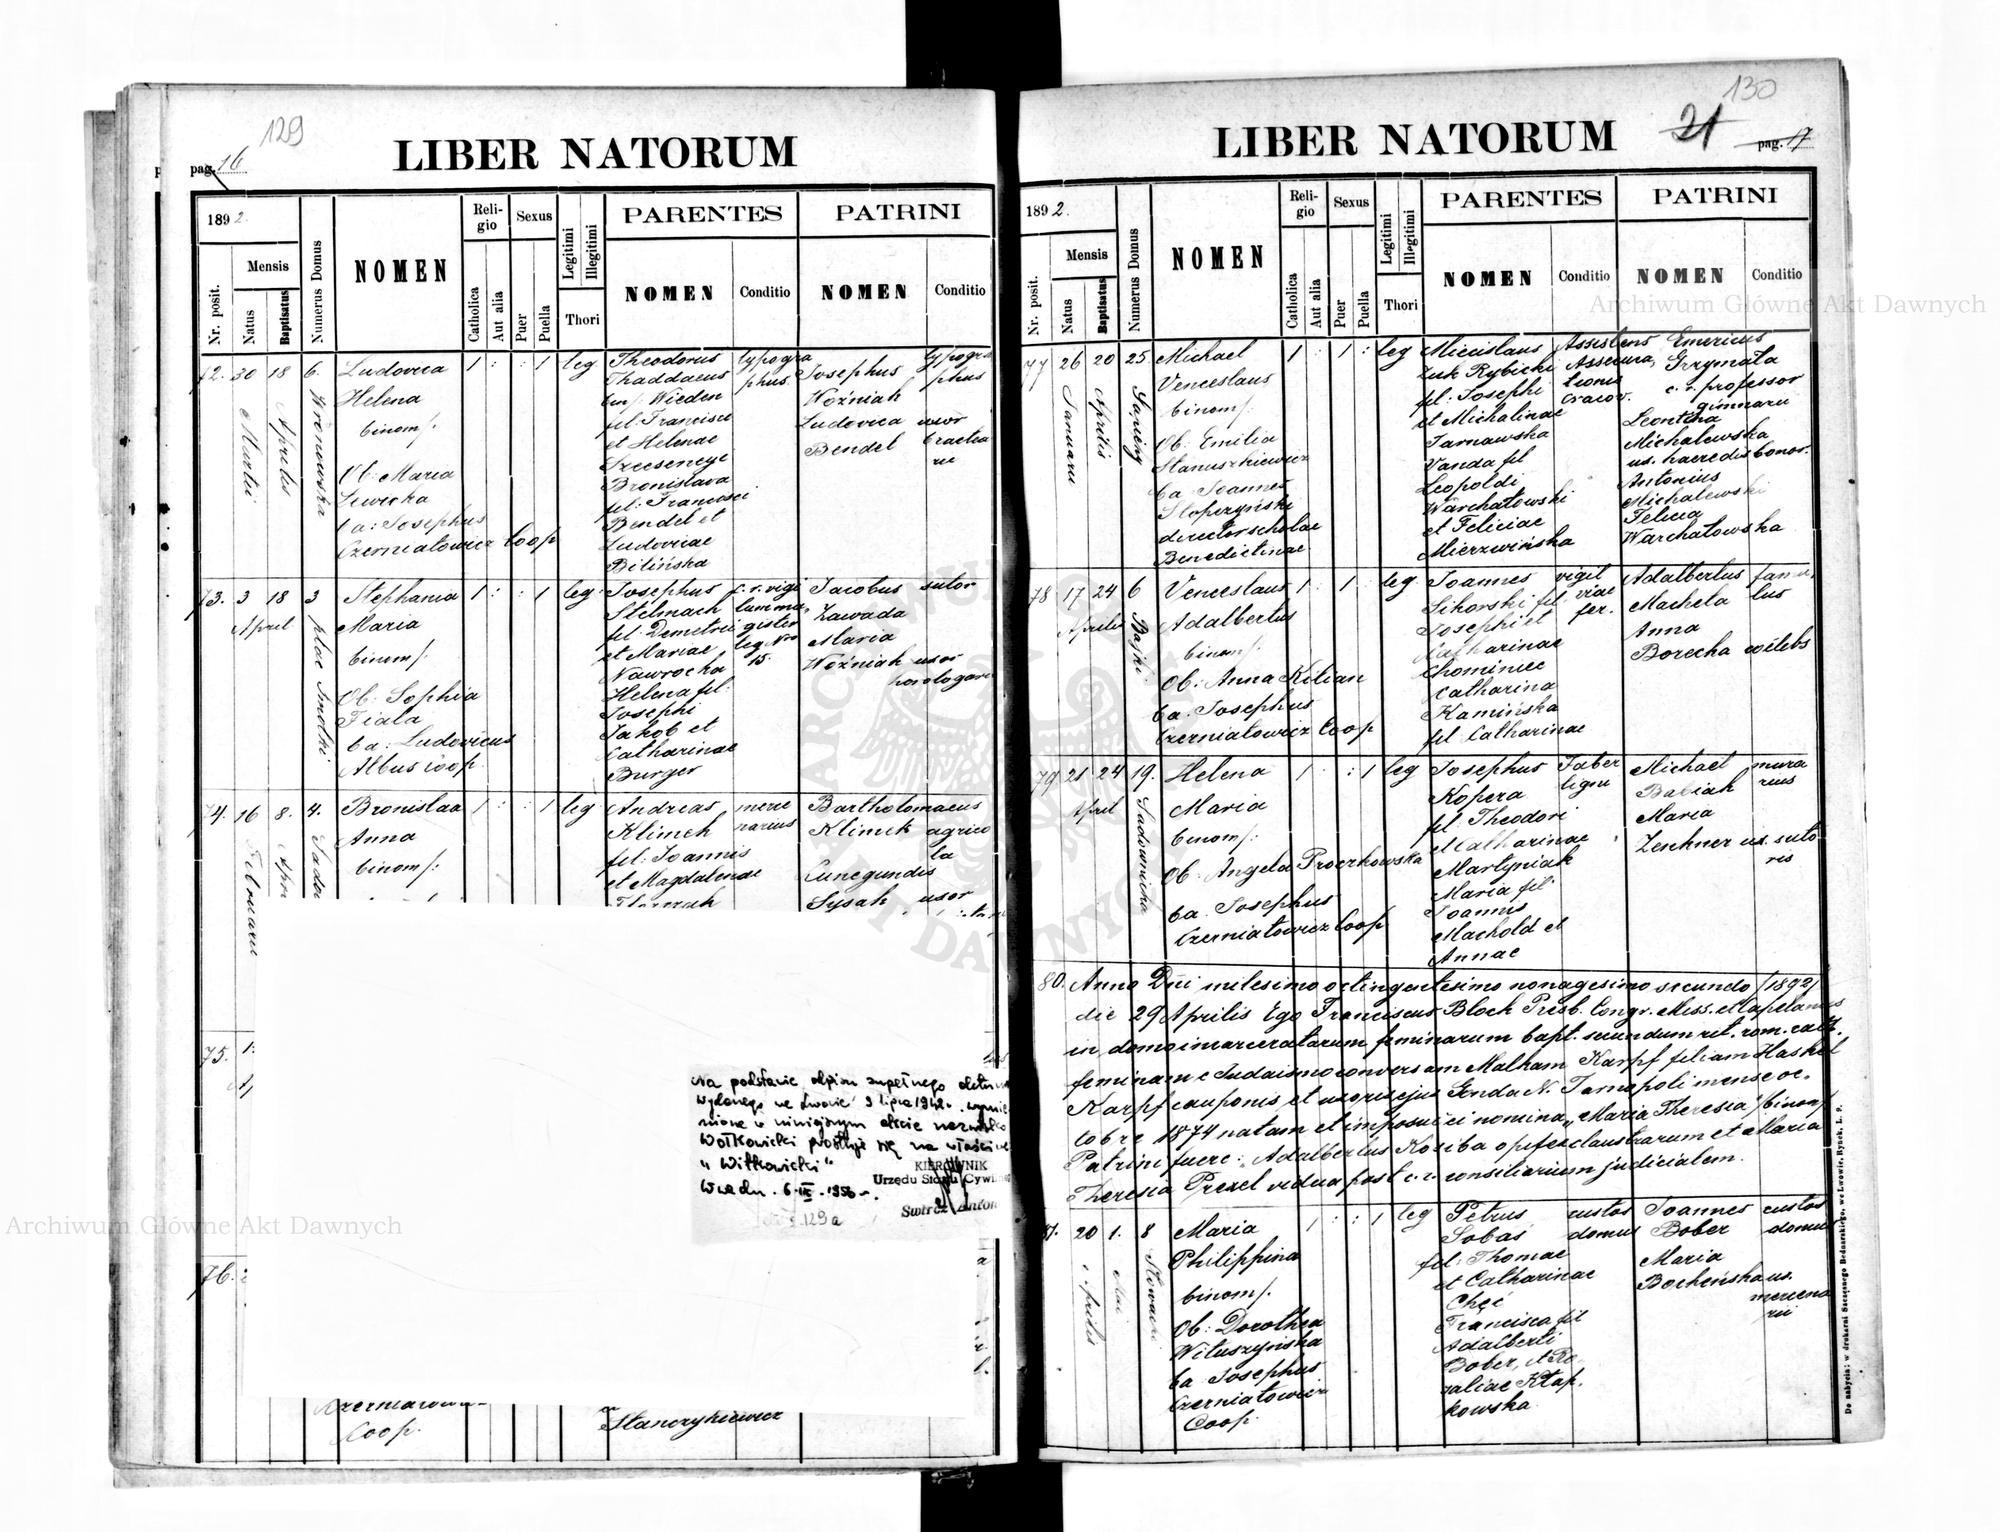 129
pag. 16
LIBER NATORUM
1892.
Nr. posit.
Mensis
Natus
Baptisatus
Numerus Domus
NOMEN
Religio
Catholica
Aut alia
Sexus
Puer
Puella
Legitimi
Illegitimi
Thori
PARENTES
NOMEN
Conditio
PATRINI
NOMEN
Conditio
72. 30 18 6.
Martii
Aprilis
Ludovica
Helena
binom/.
Ob: Maria
Lewicka
ba: Josephus
Czerniatowicz Coop
1 : : 1 leg
Theodorus
Thaddaeus
bin/. Wieden
fil: Francisci
et Helenae
Bronislava
fil: Francisci
Bendel et
Ludovicae
Bilińska
typogra
phus.
Josephus
Woźniak
Ludovica uxor
Bendel bractea
rii
typogra
phus
73. 3 18 3
April
plac Smolki
Stephania
Maria
binom/.
Ob: Sophia
Fiala
ba: Ludovicus
Albus coop.
1 : : 1 leg
Josephus
Stelmach
fil: Demetrii
et Mariae
Nawrocka
Helena fil:
Josephi
Jakob et
Catharinae
Burger
c. r. vigi
lum ma,
gister
leg Nro
15.
Jacobus sutor
Zawada
Maria
Woźniak uxor
horologarii
74. 16 8. 4.
Februarii
Bronislaa
Anna
binom/:
1 : : 1 leg
Andreas
Klimek
fil: Joannis
et Magdalenae
merce
narius
Bartholomaeus
Klimek agrico
la
Cunegundis
Sysak uxor
75.
76.
Na podstawie odpisu zupełnego
wydanego we Lwowie 9 lipca 1942r.
mione w niniejszym akcie nazwisko
Wołkowicki prostuje się na właściwe
„Witkowicki"
KIEROWNIK
Urzędu Stanu Cywil
6. III. 1956
129a
Coop.
Stanczykiewicz
130
21
pag. 17
LIBER NATORUM
1892.
Nr. posit.
Mensis
Natus
Baptisatus
Numerus Domus
NOMEN
Religio
Catholica
Aut alia
Sexus
Puer
Puella
Legitimi
Illegitimi
Thori
PARENTES
NOMEN
Conditio
PATRINI
NOMEN
Conditio
77 26 20 25
Januarii
Aprilis
Michael
Venceslaus
binom/.
Ob: Emilia
Hanuszkiewicz
ba Joannes
Stopczyński
director scholae
Benedictinae
1 : 1 : leg
Miecislaus
Żuk Rybicki
fil: Josephi
et Michalinae
Tarnawska
Vanda fil
Leopoldi
Warchałowski
et Feliciae
Mierzwińska
Assistens
Assecura,
tionis
Cracov.
Emericus
Grzymała
c. r. professor
gimnarii
Leontina
Michalewska
ux. haeredis bonor.
Antonius
Michalewski
Felicia
Warchałowska
78 17 24 6
Aprilis
Bajki
Venceslaus
Adalbertus
binom/.
Ob: Anna Kilian
ba. Josephus
Czerniatowicz Coop
1 : 1 : leg
Joannes
Sikorski fil
Josephi et
Catharinae
Chominiec
Catharina
Kamińska
fil Catharinae
vigil
viae
fer.
Adalbertus famu,
Macheta lus
Anna
Borecka coelebs
79 21 24 19.
April
Helena
Maria
binom/:
Ob: Angela Proczkowska
ba. Josephus
Czerniatowicz Coop
1 : : 1 leg
Josephus
Kopera
fil Theodori
et Catharinae
Martyniak
Maria fil:
Joannis
Machold et
Annae
Faber
lign.
Michael mura
Babiak rius
Maria
Zenkner ux. suto
ris
80. Anno Dni milesimo octingentesimo nonagesimo secundo /1892/
die 29 Aprilis Ego Franciscus Bloch Presb. Congr. Miss. et Capelanus
in domo incarceratarum feminarum bapt. secundum rit. rom. cath.
feminam e Judaismo conversam Malham Karpf filiam Haskel
Karpf cauponis et uxoris ejus Genda N. Tarnopoli mense oc-
tobre 1874 natam et imposui ei nomina „Maria Theresia" /binom/
Patrini fuere: Adalbertus Koziba opifex claustrarum et Maria
Theresia Prexel vidua post c. r. consiliarium judicialem.
81. 20 1. 8
Aprilis
Mai
Maria
Philippina
binom/.
Ob: Dorothea
Wituszyńska
ba Josephus
Czerniatowicz
Coop.
1 : : 1 leg
Petrus
Sobaś
fil: Thomae
et Catharinae
Chęć
Francisca fil
Adalberti
Bober, et Ro
saliae Kłap,
kowska.
custos
domus
Joannes custos
Bober domus
Maria
Bocheńska ux.
mercena
rii
Do nabycia: w drukarni Szczęsnego Bednarskiego, we Lwowie, Rynek, L. 9.
Archiwum Główne Akt Dawnych
Archiwum Główne Akt Dawnych